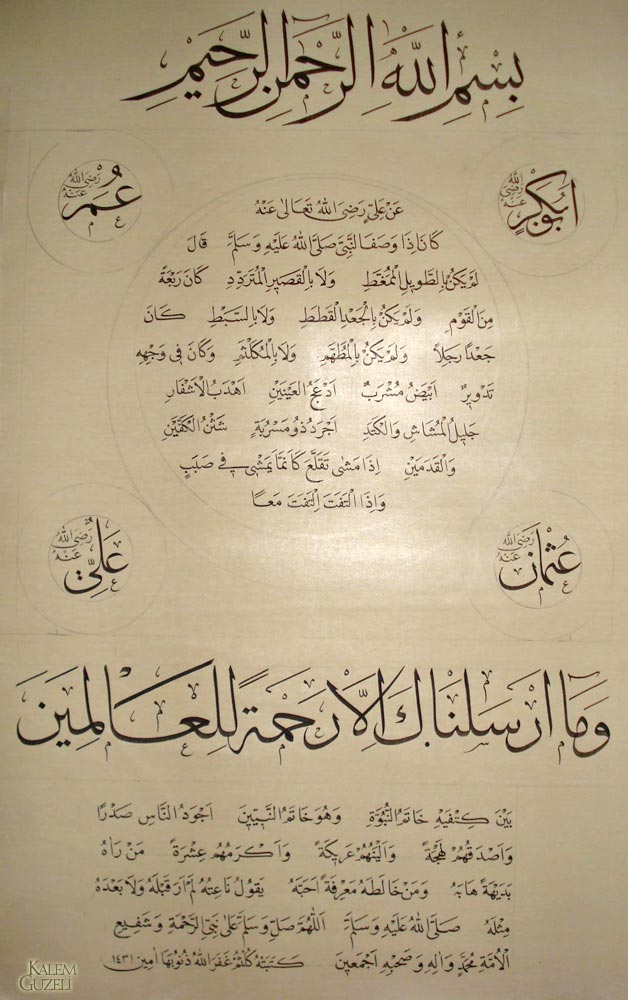 بِسْمِ اللهِ الرَّحْمٰنِ الرَّحِيمِ
اَبُو بَكْرٍ رَضِىَ اللهُ عَنْهُ
عُمَرُ رَضِىَ اللهُ عَنْهُ
عَنْ عَلِيٍّ رَضِىَ اللهُ تَعَالٰى عَنْهُ
كَانَ اِذَا وَصَفَ النَّبِىَّ صَلَّى اللهُ عَلَيْهِ وَسَلَّمَ قَالَ
لَمْ يَكُنْ بِالطَّوِيلِ الْمُمَّغَطِ وَلَا بِالْقَصِيرِ الْمُتَرَدِّدِ كَانَ رَبْعَةً
مِنَ الْقَوْمِ وَلَمْ يَكُنْ بِالْجَعْدِ الْقَطَطِ وَلَا بِالسَّبْطِ كَانَ
جَعْدًا رَجِلًا وَلَمْ يَكُنْ بِالْمُطَهَّمِ وَلَا بِالْمُكَلْثَمِ وَكَانَ فِى وَجْهِهِ
تَدْوِيرٌ اَبْيَضُ مُشْرَبٌ اَدْعَجُ الْعَيْنَيْنِ اَهْدَبُ الْاَشْفَارِ
جَلِيلُ الْمُشَاشِ وَالْكَتَدِ اَجْرَدُ ذُو مَسْرُبَةٍ شَثْنُ الْكَفَّيْنِ
وَالْقَدَمَيْنِ اِذَا مَشٰى تَقَلَّعَ كَاَنَّمَا يَمْشِى فِى صَبَبٍ
وَاِذَا الْتَفَتَ اِلْتَفَتَ مَعًا
عُثْمَانُ رَضِىَ اللهُ عَنْهُ
عَلِىٌّ رَضِىَ اللهُ عَنْهُ
وَمَا اَرْسَلْنَاكَ اِلَّا رَحْمَةً لِلْعَالَمِينَ
بَيْنَ كِتْفَيْهِ خَاتَمُ النُّبُوَّةِ وَهُوَ خَاتَمُ النَّبِيِّينَ اَجْوَدُ النَّاسِ صَدْرًا
وَاَصْدَقُهُمْ لَهْجَةً وَاَلْيَنُهُمْ عَرِيكَةً وَاَكْرَمُهُمْ عِشْرَةً مَنْ رَاٰهُ
بَدِيهَةً هَابَهُ وَمَنْ خَالَطَهُ مَعْرِفَةً اَحَبَّهُ يَقُولُ نَاعِتُهُ لَمْ اَرَ قَبْلَهُ وَلَا بَعْدَهُ
مِثْلَهُ صَلَّى اللهُ عَلَيْهِ وَسَلَّمَ اَللّٰهُمَّ صَلِّ وَسَلِّمْ عَلٰى نَبِىِّ الرَّحْمَةِ وَشَفِيعِ
الْاُمَّةِ مُحَمَّدٍ وَاٰلِهِ وَصَحْبِهِ اَجْمَعِينَ كَتَبَتْهُ كُلْثُمْ غَفَرَ اللهُ ذُنُوبَهَا اٰمِين ١٤٣١
KALEM
GUZELI